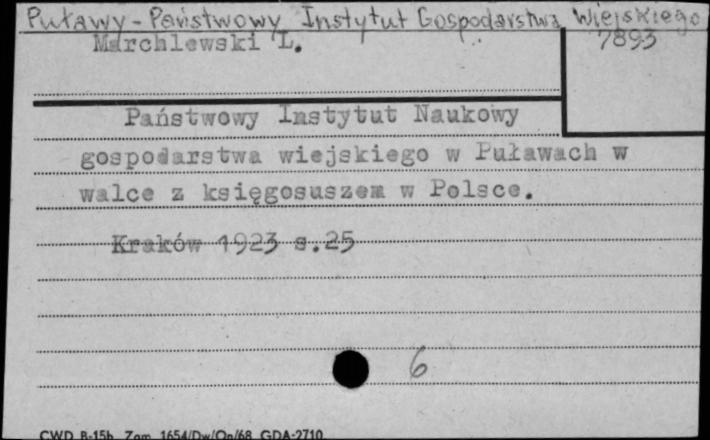 Puławy - Państwowy Instytut Gospodarstwa Wiejskiego
Marchlewski L.
7893
Państwowy Instytut Naukowy
gospodarstwa wiejskiego w Puławach w
walce z księgosuszem w Polsce.
Kraków 1923 s.25
6
CWD B-15h Zam. 1654/Dw/On/68 GDA-2710